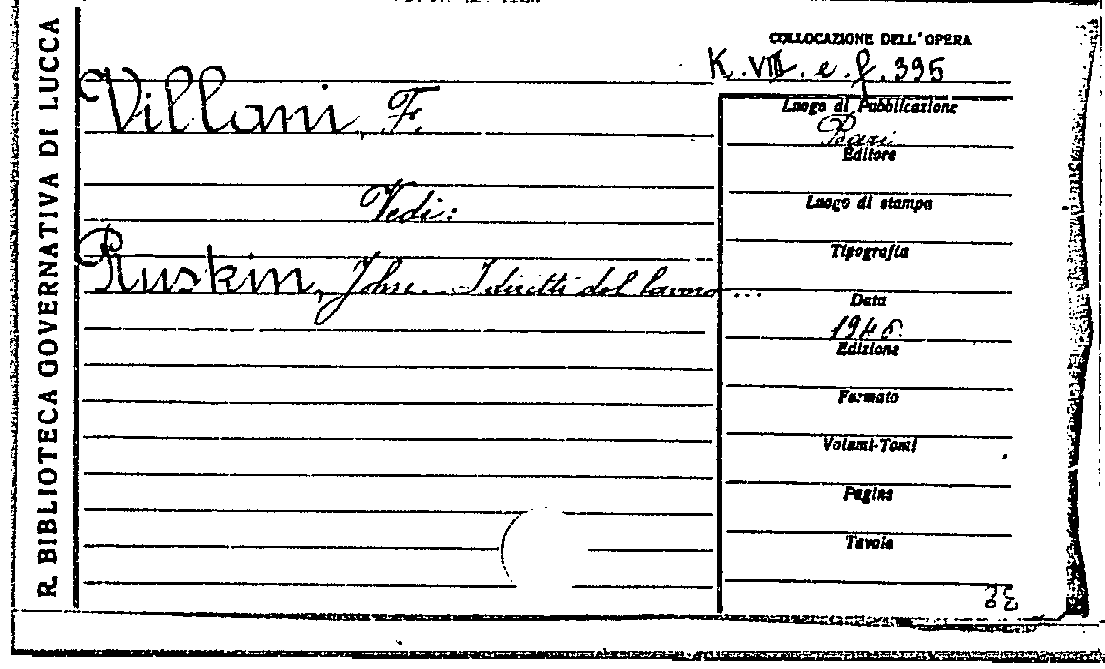 R. BIBLIOTECA GOVERNATIVA DI LUCCA
COLLOCAZIONE DELL'OPERA
K. VIII. e. f. 395
Villani, F.
Vedi:
Ruskin, John. I diritti del lavoro...
Luogo di Pubblicazione
Bari
Editore
Luogo di stampa
Tipografia
Data
1946.
Edizione
Formato
Volumi-Tomi
Pagine
Tavole